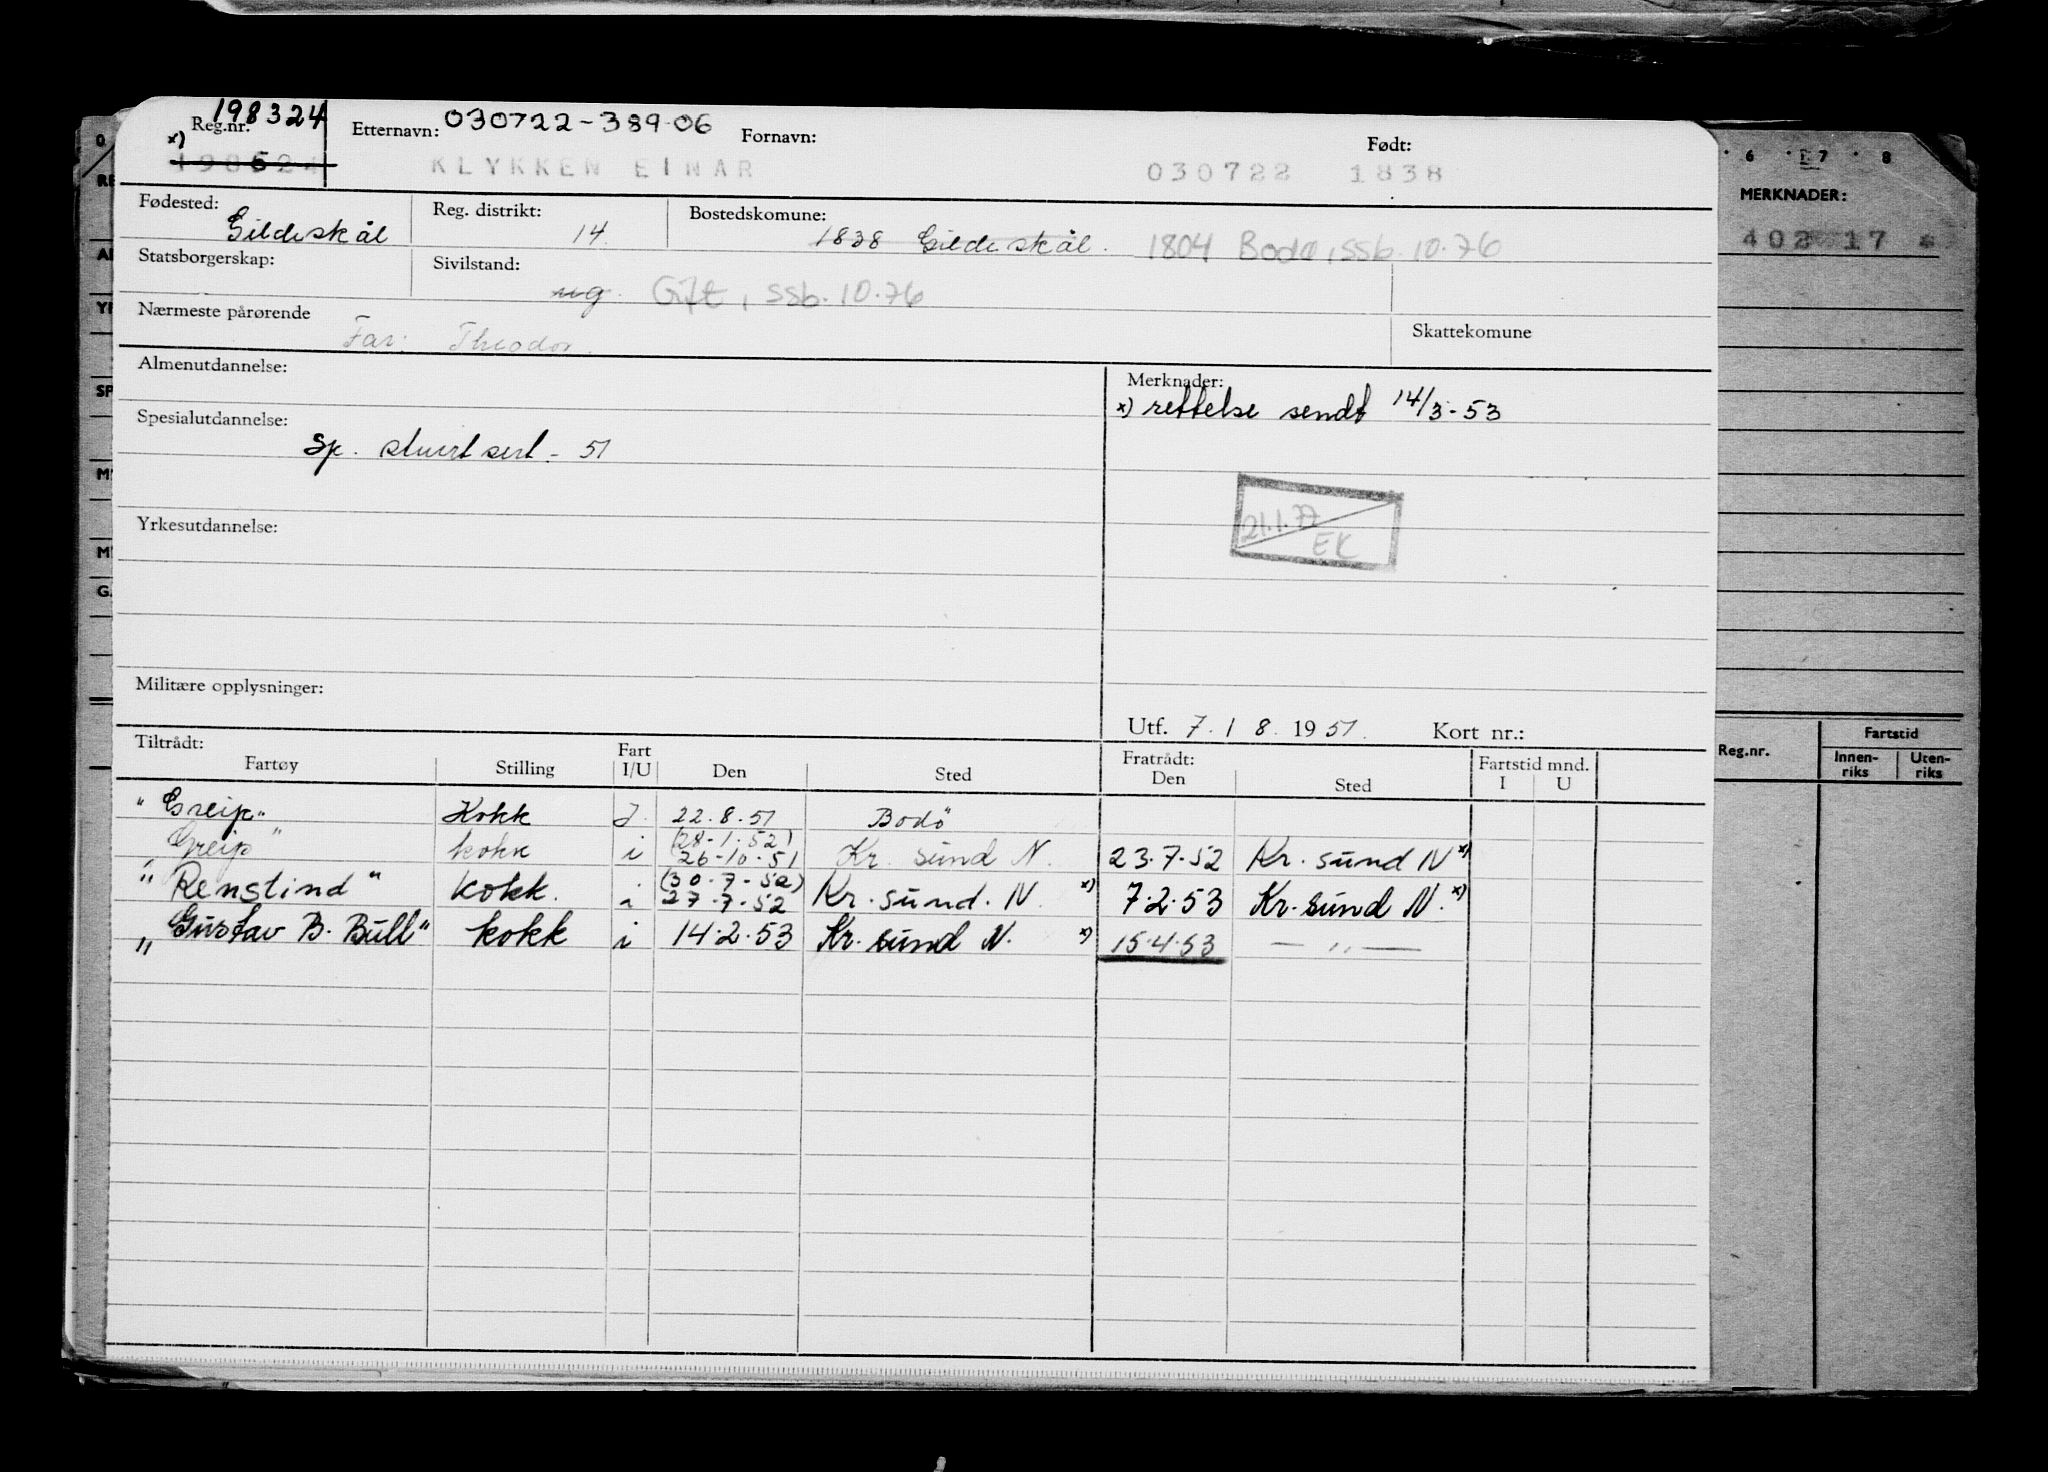 198324
Reg.nr. Etternavn: 030722-389.06 Fornavn: Født:
x) KLYKKEN EINAR 030722 1838
Fødested: Gildeskål Reg. distrikt: 14 Bostedskomune: 1838 Gildeskål. 1804 Bodø, ssb. 10.76
Statsborgerskap: Sivilstand: ug. Gift, ssb. 10.76
Nærmeste pårørende Far: Theodor. Skattekomune
Almenutdannelse: Merknader:
x) rettelse sendt 14/3-53
Spesialutdannelse: Sp. stuert sert - 51
21.1.77 EK
Yrkesutdannelse:
Militære opplysninger:
Utf. 7. / 8 1951. Kort nr.:
Tiltrådt: Fratrådt: Fartstid mnd.
Fartøy Stilling Fart I/U Den Sted Den Sted I U
"Greip" Kokk I. 22.8.51 Bodö
"Greip" kokk i (28-1-52) 26-10-51 Kr. sund N. 23.7-52 Kr. sund N x)
"Renstind" kokk. i (30.7-52) 27-7-52 Kr. sund. N. x) 7.2.53 Kr. sund N. x)
"Gustav B. Bull" kokk i 14.2.53 Kr. sund N. x) 15.4.53 — " —
0
6 7 8
MERKNADER:
402 17 *
SP
G.
Reg.nr. Fartstid
Innen-riks Uten-riks